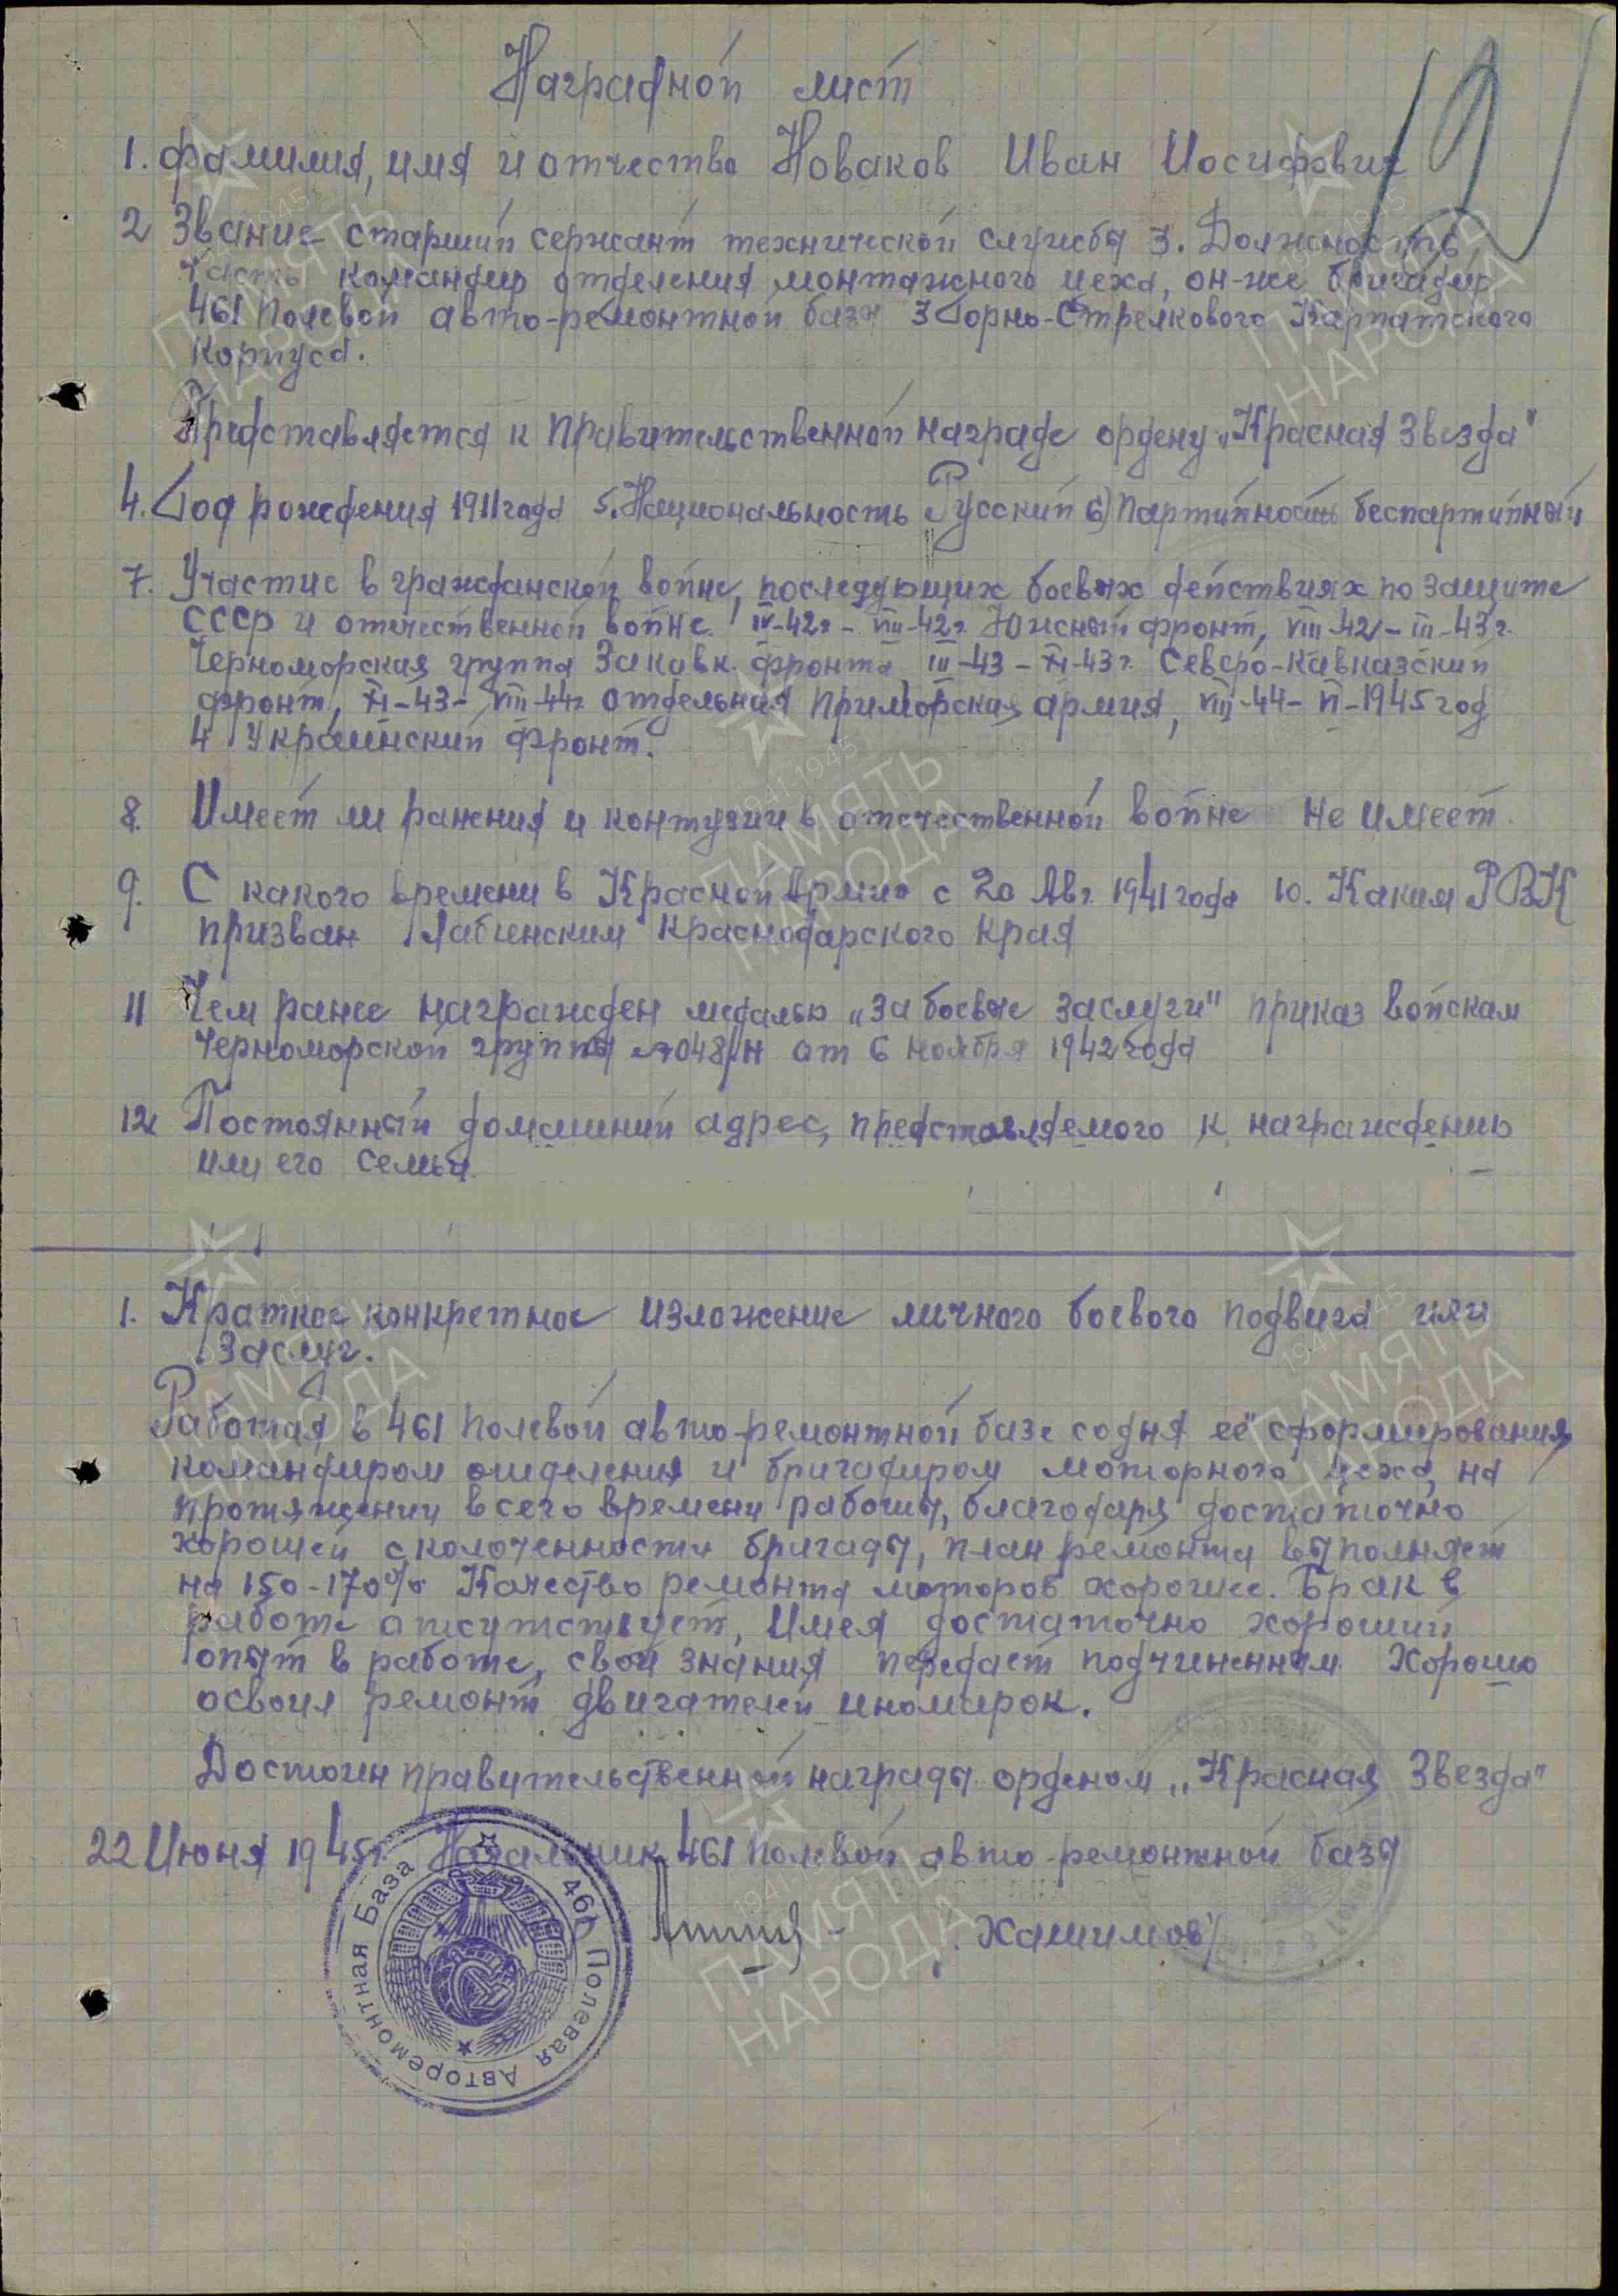 Наградной лист
12
1. Фамилия, имя и отчество Новаков Иван Иосифович
2 Звание старший сержант технической службы 3. Должность
часть командир отделения монтажного цеха, он-же бригадир
461 Полевой авто-ремонтной базы 3 Горно-Стрелкового Карпатского
Корпуса.
Представляется к правительственной награде ордену „Красная Звезда"
4. Год рождения 1911 года 5. Национальность Русский 6) Партийность беспартийный
7. Участие в гражданской войне, последующих боевых действиях по защите
СССР и отечественной войне. IV-42г - VIII-42г. Южный фронт, VIII-42 - III-43г.
Черноморская группа Закавк. фронта, III-43 - XI-43г. Северо-Кавказский
фронт, XI-43 - VIII-44г. отдельная приморская армия, VIII-44 - VI-1945 год
4 Украинский фронт.
8. Имеет ли ранения и контузии в отечественной войне не имеет.
9. С какого времени в Красной Армии с 20 Авг. 1941 года 10. Каким РВК
призван Лабинским Краснодарского Края
11 Чем ранее награжден медалью „За боевые заслуги" приказ войскам
Черноморской группы №048/н от 6 ноября 1942 года
12 Постоянный домашний адрес, представляемого к награждению
или его семьи.
1. Краткое конкретное изложение личного боевого подвига или
заслуг.
Работая в 461 полевой авто-ремонтной базе со дня её сформирования
командиром отделения и бригадиром моторного цеха, на
протяжении всего времени работы, благодаря достаточно
хорошей сколоченности бригады, план ремонта выполняет
на 150-170% Качество ремонта моторов хорошее. Брак в
работе отсутствует, Имея достаточно хороший
опыт в работе, свои знания передает подчиненным. Хорошо
освоил ремонт двигателей иномарок.
Достоин правительственной награды орденом „Красная Звезда"
22 Июня 1945г. Начальник 461 полевой авто-ремонтной базы
Хашимов/
461 Полевая Авторемонтная База
ПАМЯТЬ
НАРОДА
1941-1945